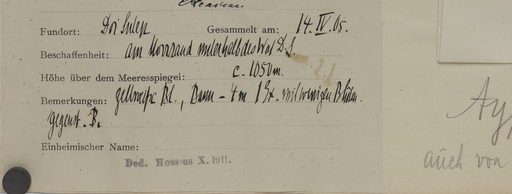 Fundort: Doi Sutep Gesammelt am: 14. IV. 05.
Beschaffenheit: am unterhalb des Wat D. S.
Höhe über dem Meeresspiegel: c. 1050 m.
Bemerkungen: gelbweiße Bl., Baum - 4 m 1 Ex. mit wenigen Blüten.
gegenst. B.
Einheimischer Name:
Ded. Hosseus X. 1911.
auch von